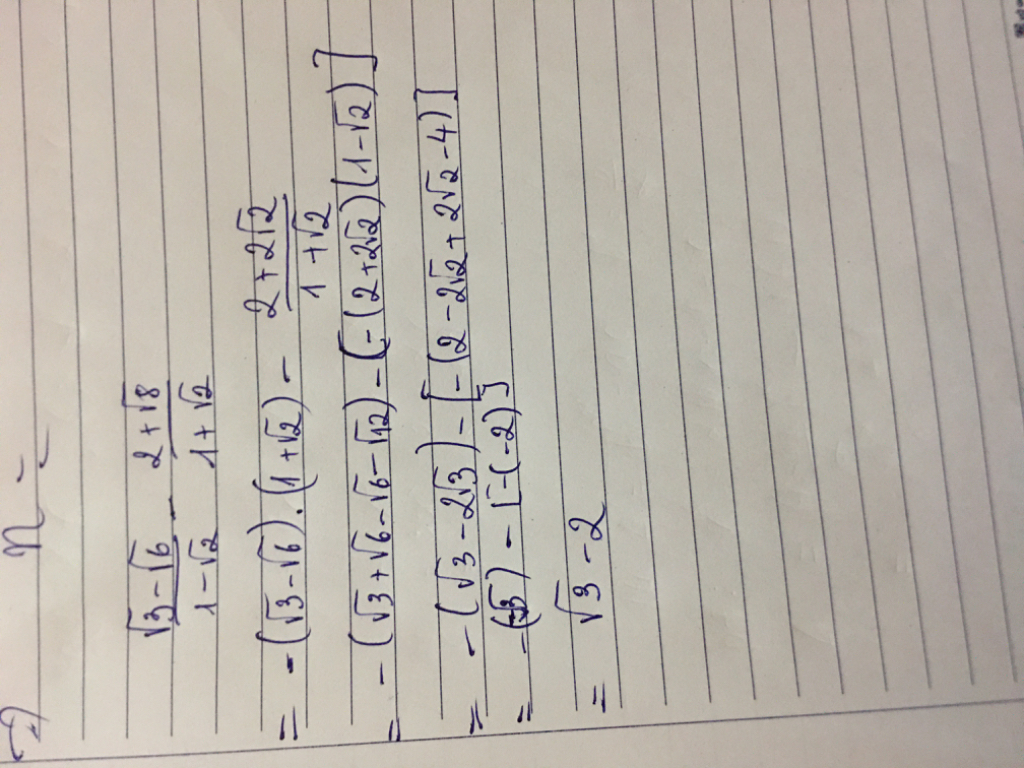 √3-√6 / 1-√2 - 2+√8 / 1+√2
= -(√3-√6).(1+√2) - 2+2√2 / 1+√2
= -(√3+√6-√6-√12)-(-(2+2√2)(1-√2)]
= -(√3-2√3)-[-(2-2√2+2√2-4)]
= -(-√3) - [-(-2)]
= √3-2